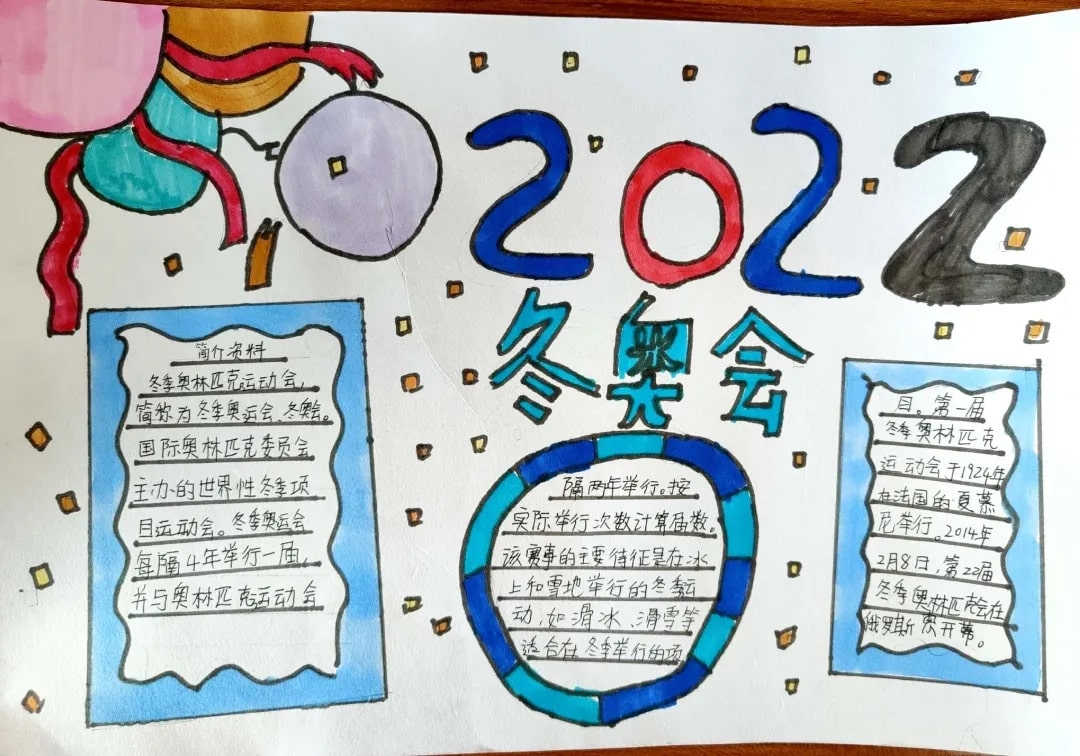 2022
冬奥会
简介资料
冬季奥林匹克运动会,
简称为冬季奥运会、冬奥会。
国际奥林匹克委员会
主办的世界性冬季项
目运动会。冬季奥运会
每隔4年举行一届,
并与奥林匹克运动会
隔两年举行。按
实际举行次数计算届数。
该赛事的主要特征是在冰
上和雪地举行的冬季运
动,如滑冰、滑雪等
适合在冬季举行的项
目。第一届
冬季奥林匹克
运动会于1924年
在法国的夏慕
尼举行。2014年
2月8日,第22届
冬季奥林匹克会在
俄罗斯 开幕。